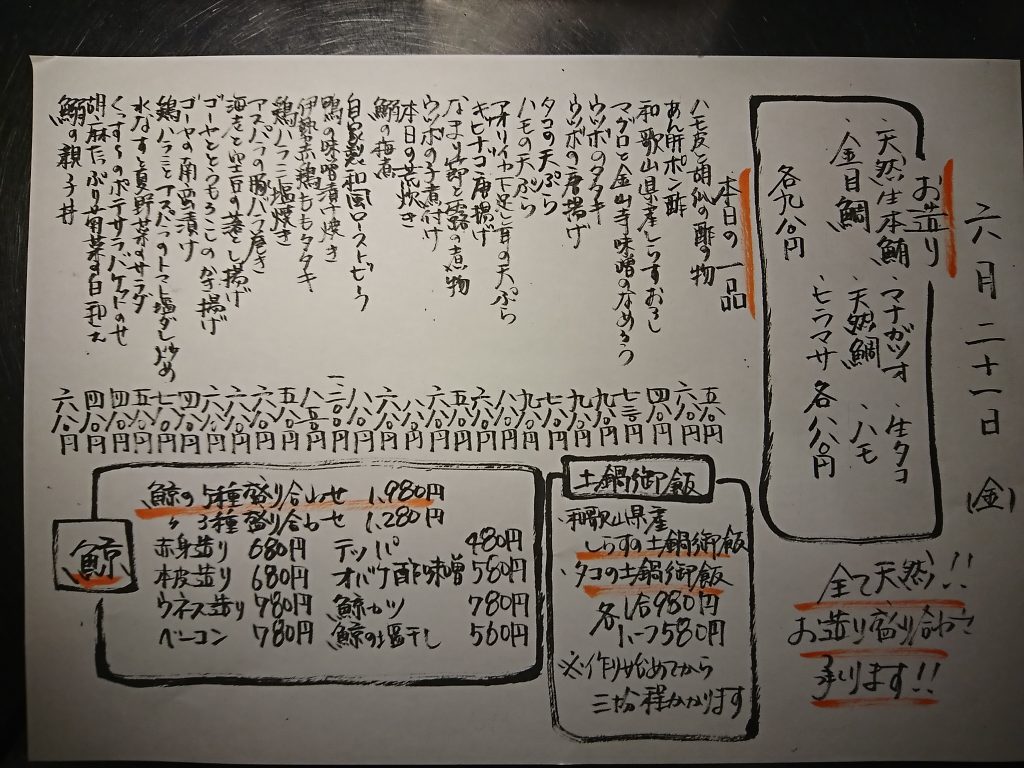 六月二十一日(金)
お造り
・天然生本鮪 マナガツオ ・生タコ
・金目鯛 天然鯛 ・ハモ
各九八〇円 ヒラマサ 各八八〇円
全て天然!!
お造り盛り合わせ
承ります!!
本日の一品
ハモ皮と胡瓜の酢の物 五八〇円
あん肝ポン酢 六八〇円
和歌山県産しらすおろし 四八〇円
マグロと金山寺味噌のなめろう 七三〇円
ウツボのタタキ 九八〇円
ウツボの唐揚げ 九八〇円
タコの天ぷら 七八〇円
ハモの天ぷら 九八〇円
アオリイカ下足と耳の天ぷら 八八〇円
キビナゴ唐揚げ 六八〇円
なまり節と蕗の煮物 五八〇円
ウツボの子煮付け 六八〇円
本日の荒炊き 八八〇円
鰯の梅煮 六八〇円
自家製和風ローストビーフ
鴨の味噌漬け焼き
伊勢赤鶏ももタタキ 八五〇円
鶏ハラミ塩焼き 五八〇円
アスパラの豚バラ巻き 六八〇円
海老と空豆の落とし揚げ 八八〇円
ゴーヤととうもろこしのかき揚げ 六八〇円
ゴーヤの南蛮漬け 四八〇円
鶏ハラミとアスパラのトマト塩だし炒め 七八〇円
水なすと夏野菜のサラダ 五八〇円
ポテサラバケットのせ 四八〇円
胡麻たっぷり青菜の白和え 四八〇円
鰯の親子丼 六八〇円
土鍋御飯
・和歌山県産
しらすの土鍋御飯
・タコの土鍋御飯
各1合980円
ハーフ580円
※作り始めてから
三十分程かかります
鯨
鯨の5種盛り合わせ 1,980円
〃 3種盛り合わせ 1,280円
赤身造り 680円 テッパ 480円
本皮造り 680円 オバケ酢味噌 580円
ウネス造り 780円 鯨カツ 780円
ベーコン 780円 鯨の塩干し 560円